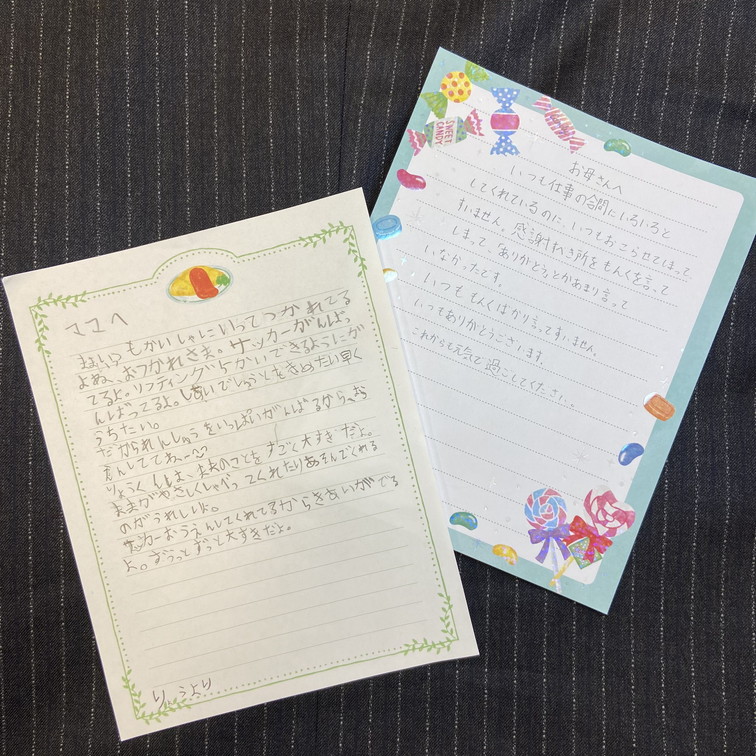 ママへ
もかいしゃにいってつかれてる
よね、おつかれさま。サッカーがんばっ
てるよ。リフティング かいできるようにが
んばってるよ。しあいでしゅうともきめたい早く
うちたい。
だかられんしゅうをいっぱいがんばるから、おう
えんしててねー
りょうくんは、ままのことをすごく大すきだよ。
ままがやさしくしゃべってくれたりあそんでくれる
のがうれしいよ。
サッカーおうえんしてくれてるからきあいがでる
よ。ずうっとずっと大すきだよ。
りょうより
SWEET CANDY
お母さんへ
いつも仕事の合間にいろいろと
してくれているのに、いつもおこらせてしまって
すいません。感謝すべき所をもんくを言って
しまって、ありがとうとかあまり言って
いなかったです。
いつももんくばかり言ってすいません。
いつもありがとうございます。
これからも元気で過ごしてください。